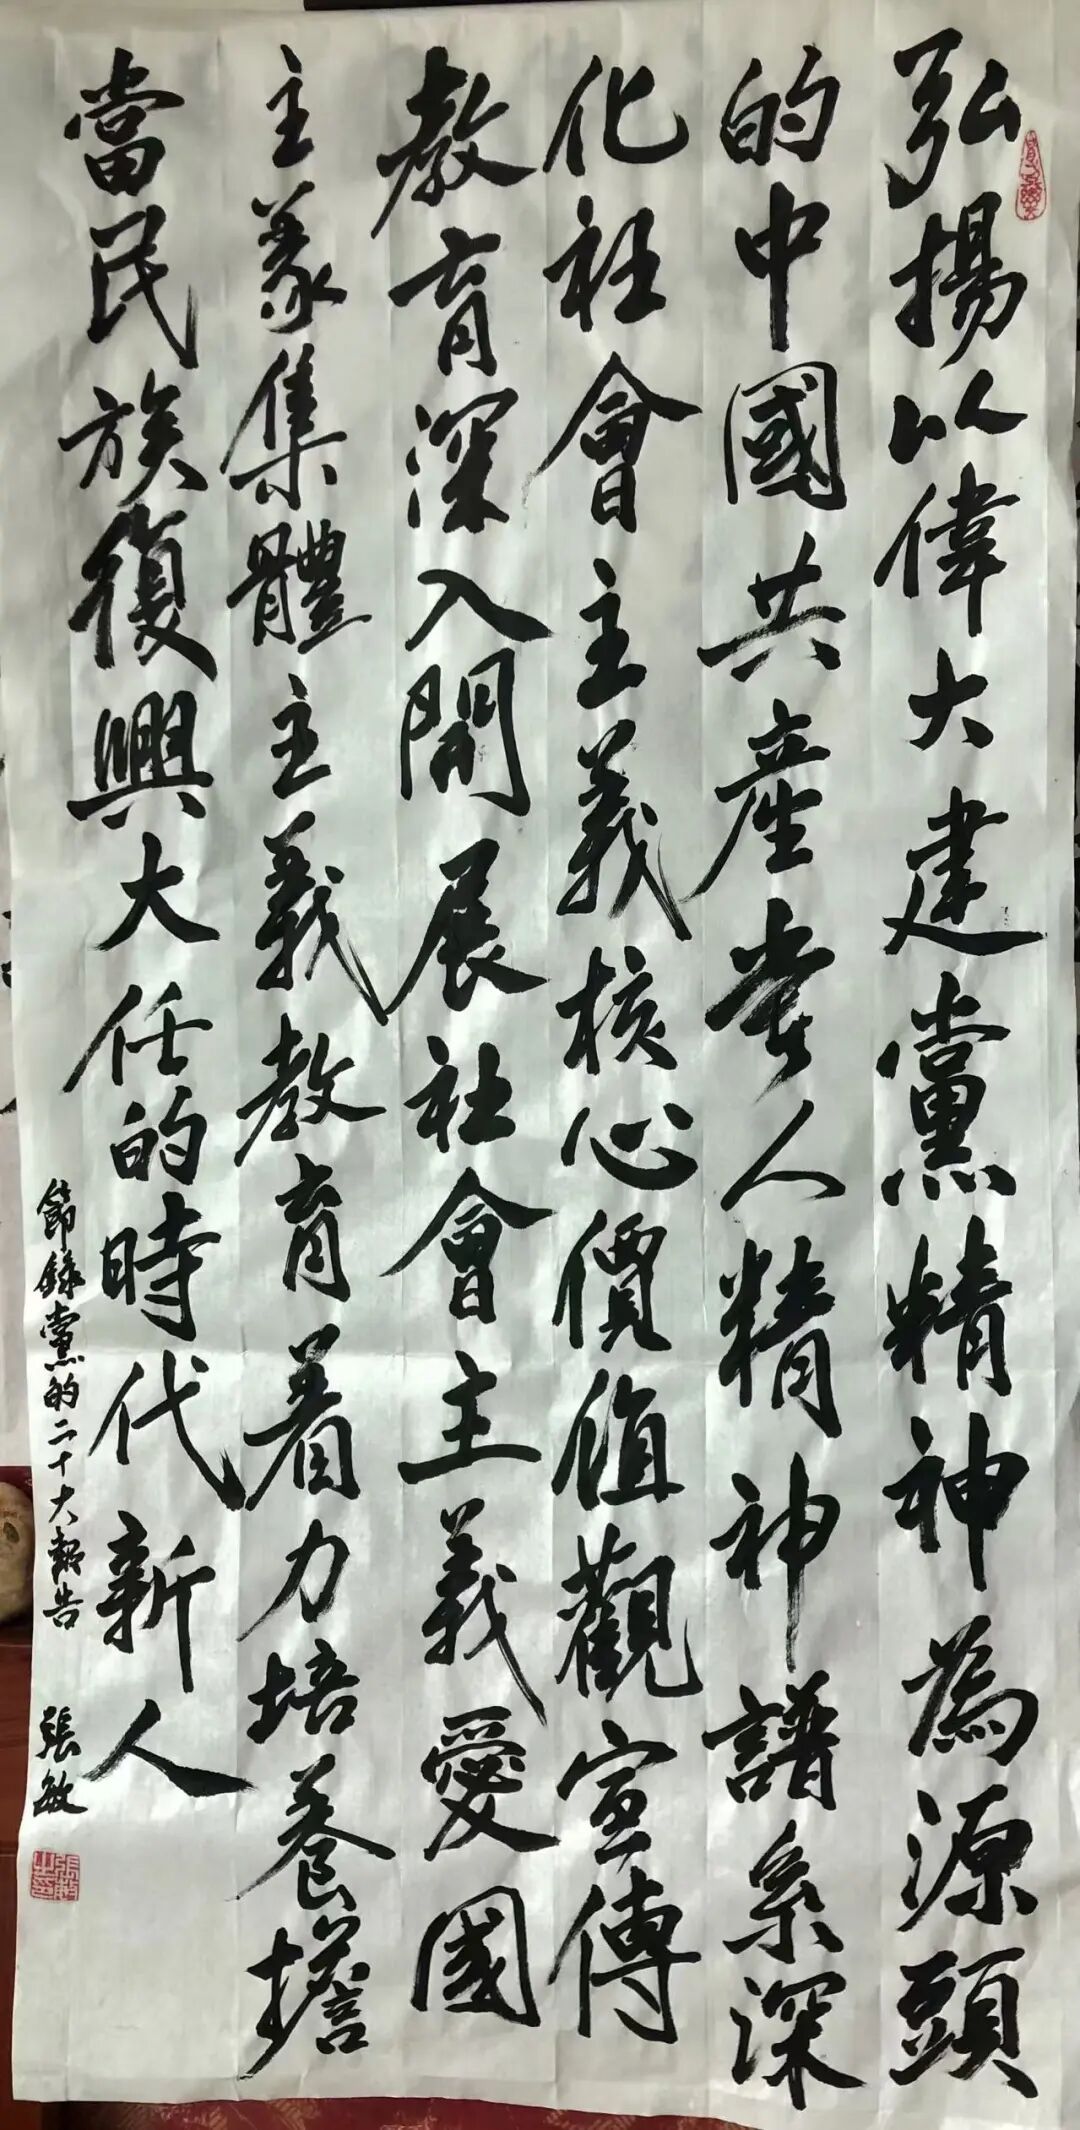 弘揚以偉大建黨精神為源頭
的中國共産党人精神譜系深
化社會主義核心價值觀宣傳
教育深入開展社會主義愛國
主義集體主義教育着力培養擔
當民族復興大任的時代新人
節錄黨的二十大報告 張敏